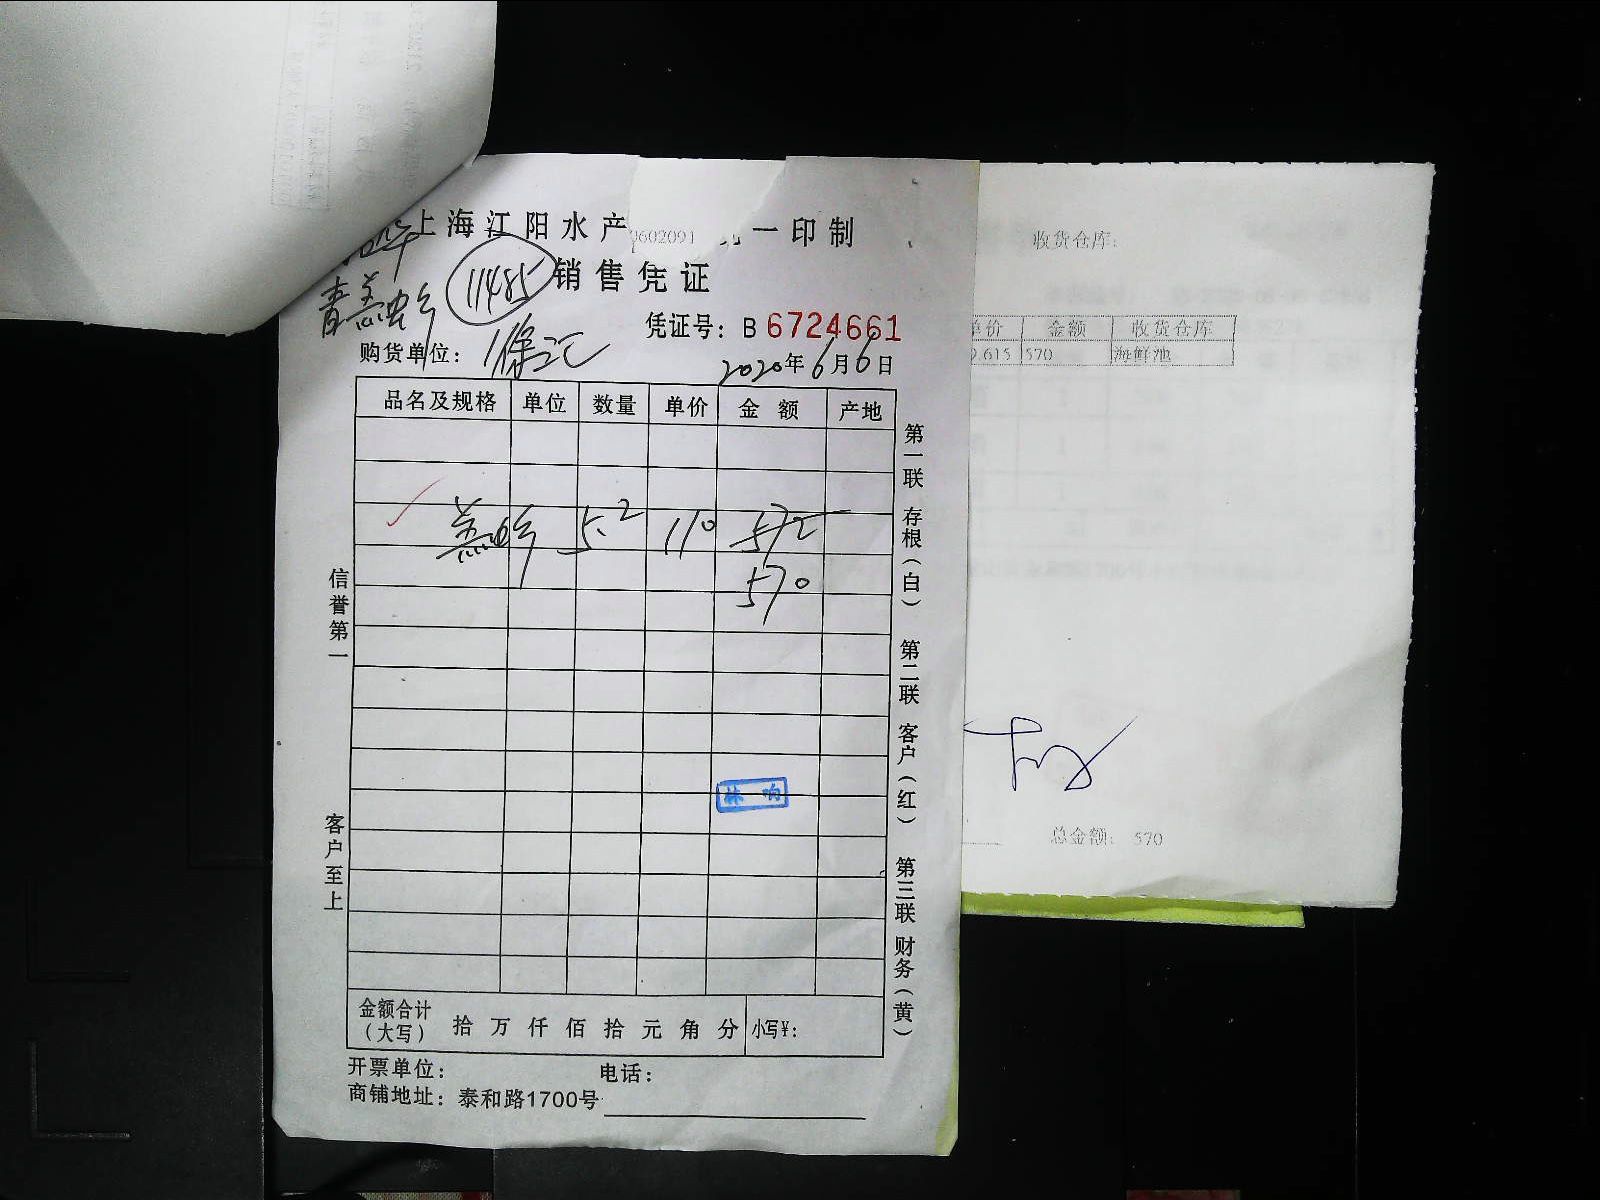 上海江阳水产
0602091
一印制
销售凭证
11485
凭证号：B 6724661
购货单位：徐汇
2020年6月6日
品名及规格 单位 数量 单价 金额 产地
5.2 110 572
570
林
信誉第一
客户至上
第一联 存根（白） 第二联 客户（红） 第三联 财务（黄）
金额合计（大写） 拾 万 仟 佰 拾 元 角 分 小写¥：
开票单位： 电话：
商铺地址：泰和路1700号
收货仓库：
单价 金额 收货仓库
9.615 570 海鲜池
总金额： 570